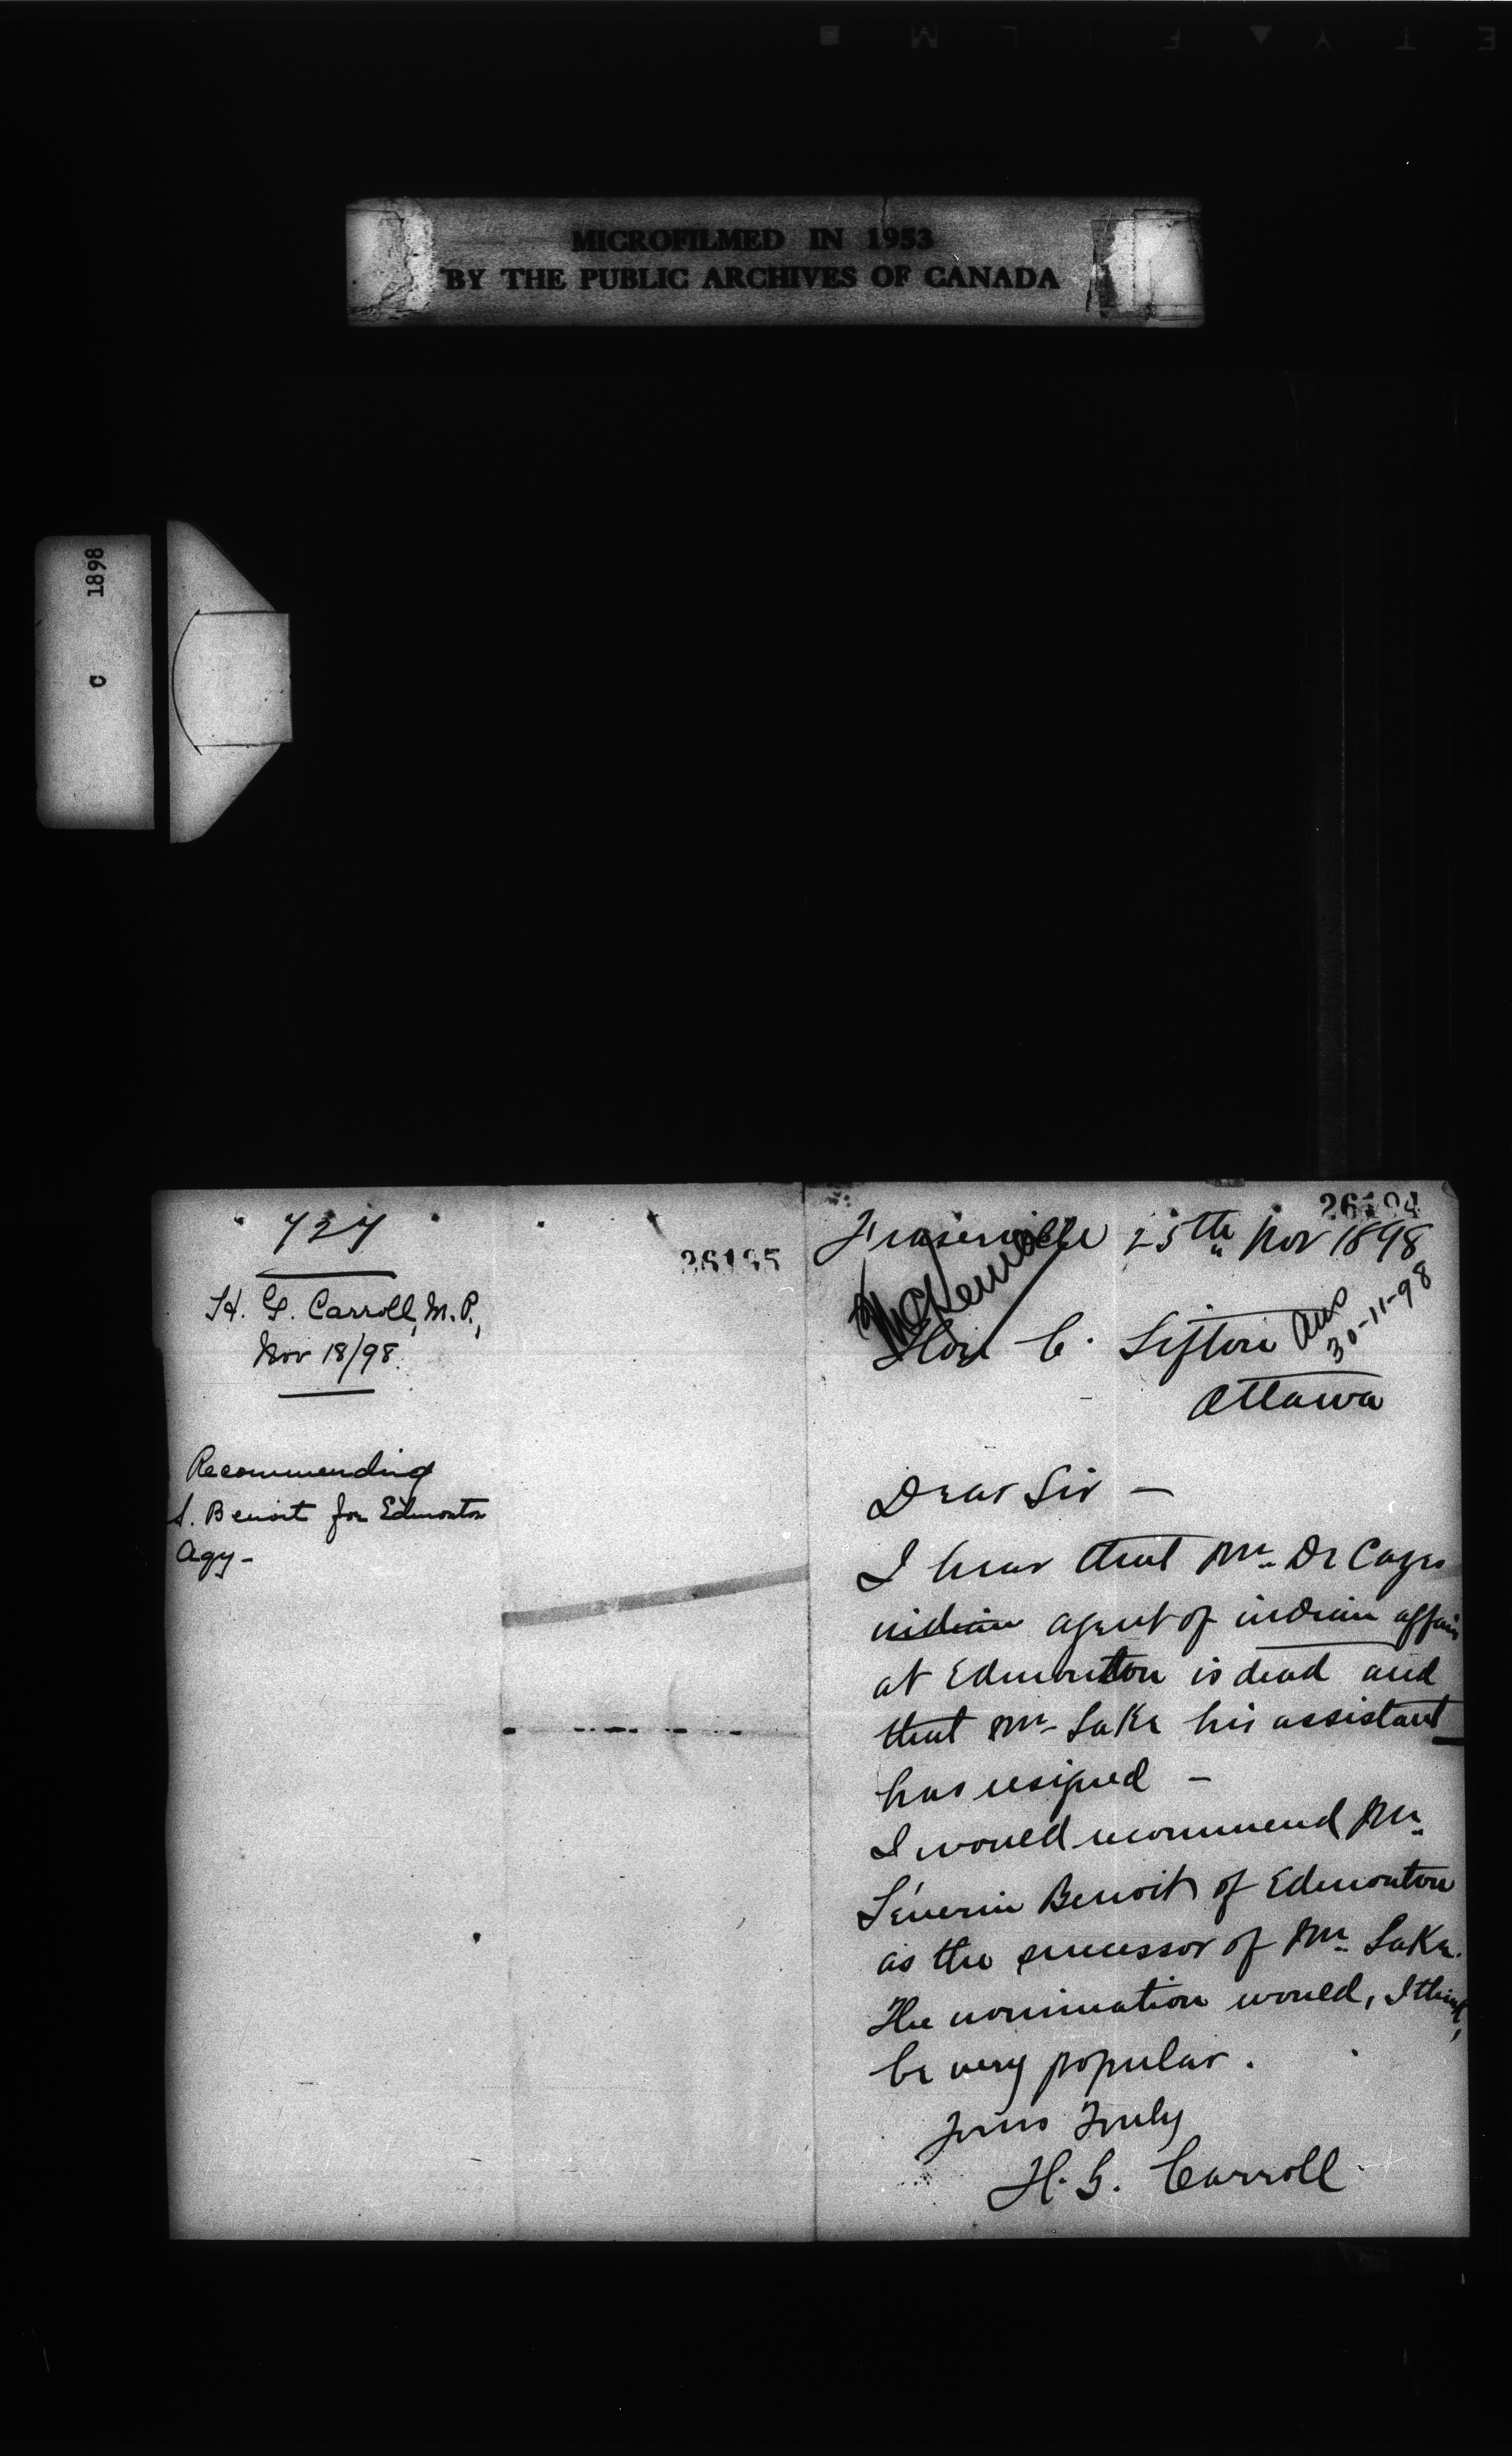 MICROFILMED IN 1953
BY THE PUBLIC ARCHIVES OF CANADA
C 1898
727
H. G. Carroll, M.P.,
Nov 18/98
Recommending
S. Benoit for Edmonton
Agy-
26195
26194
Fraserville 25th Nov 1898
McKenna
Hon C. Sifton
Ans
30-11-98
Ottawa
Dear Sir —
I hear that Mr. De Cazes
indian agent of indian affairs
at Edmonton is dead and
that Mr. Lake his assistant
has resigned —
I would recommend Mr.
Séverin Benoit of Edmonton
as the successor of Mr. Lake.
The nomination would, I think,
be very popular.
Yours Truly
H. G. Carroll